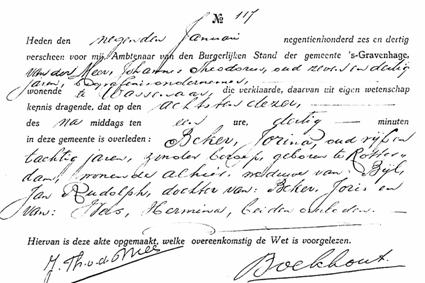 № 117
Heden den negenden Januari negentienhonderd zes en dertig
verscheen voor mij Ambtenaar van den Burgerlijken Stand der gemeente 's-Gravenhage.
van der Meer, Johannes Theodorus, oud zeven en dertig
jaren, begrafenisondernemer,
wonende te Wassenaar, die verklaarde, daarvan uit eigen wetenschap
kennis dragende, dat op den achtsten dezer,
des na middags ten een ure, dertig minuten
in deze gemeente is overleden: Beker, Jorina, oud vijf en
tachtig jaren, zonder beroep, geboren te Rotter-
dam, wonende alhier, weduwe van: Bijl,
Jan Rudolph, dochter van: Beker, Joris en
van: Vas, Hermina, beiden overleden.
Hiervan is deze akte opgemaakt, welke overeenkomstig de Wet is voorgelezen.
J. Th. v. d. Meer
Boekhout